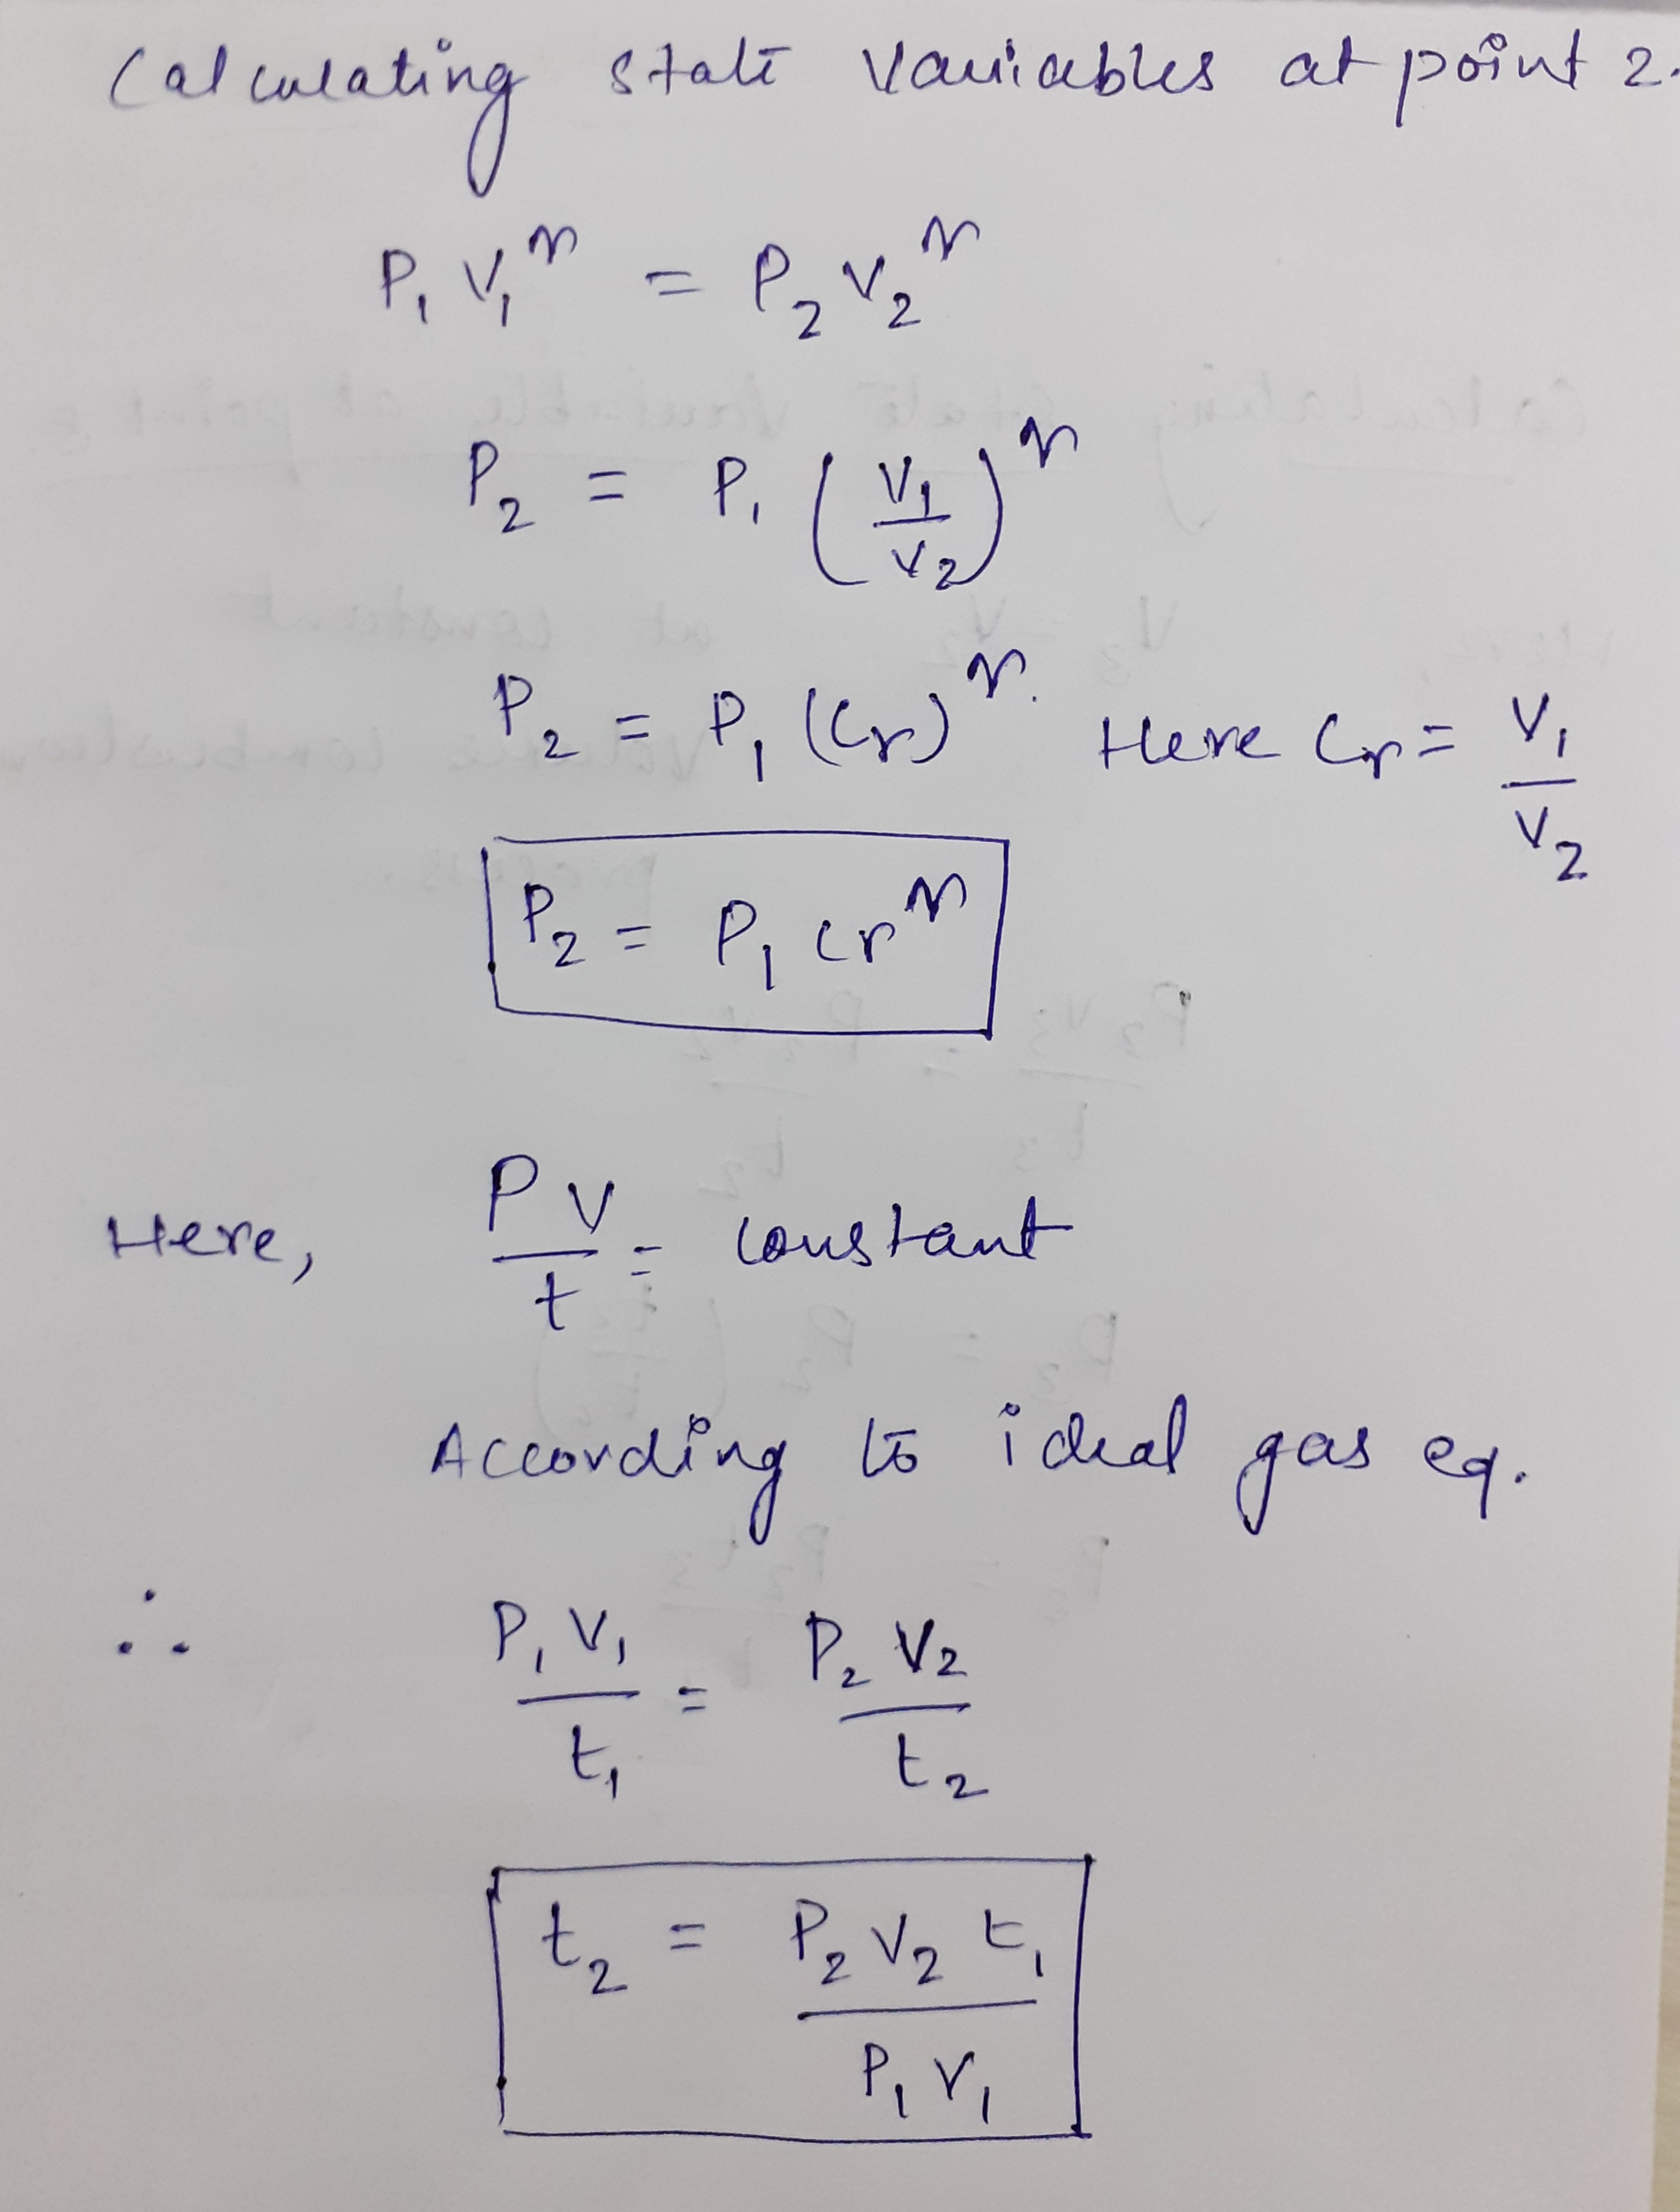 Calculating state Variables at point 2.
P₁ V₁^γ = P₂ V₂^γ
P₂ = P₁ (V₁/V₂)^γ
P₂ = P₁ (Cr)^γ. Here Cr = V₁/V₂
P₂ = P₁ Cr^γ
Here, PV/t = constant
According to ideal gas eq.
∴ P₁V₁/t₁ = P₂V₂/t₂
t₂ = P₂V₂t₁/P₁V₁